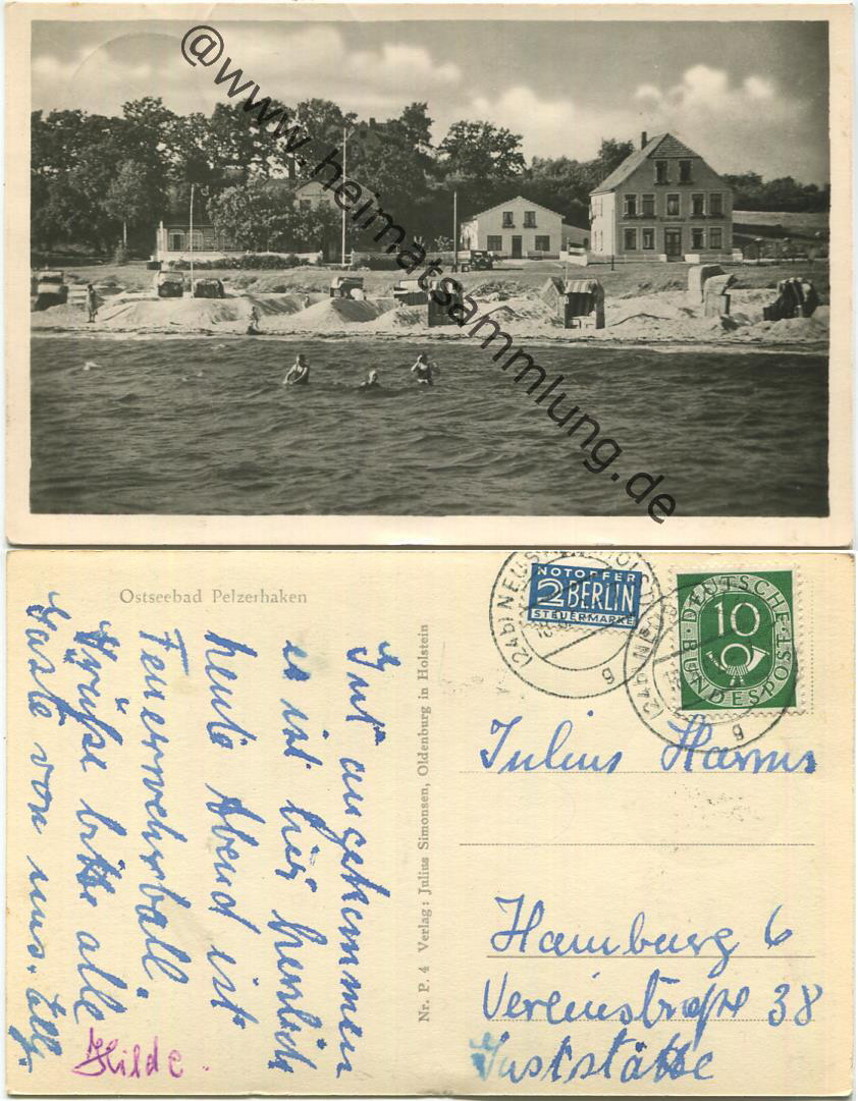 @www.heimatsammlung.de
Ostseebad Pelzerhaken
Gut angekommen
es ist hier herrlich
heute Abend ist
Feuerwehrball.
Grüße bitte alle
Gäste von uns. Elly.
Hilde.
Nr. P. 4 Verlag: Julius Simonsen, Oldenburg in Holstein
NOTOPFER
2 BERLIN
STEUERMARKE
DEUTSCHE
10
BUNDESPOST
(24b) NEUSTADT (HOLST)
g
(24b) NEUSTADT
g
Julius Harms
Hamburg 6
Vereinstraße 38
Gaststätte